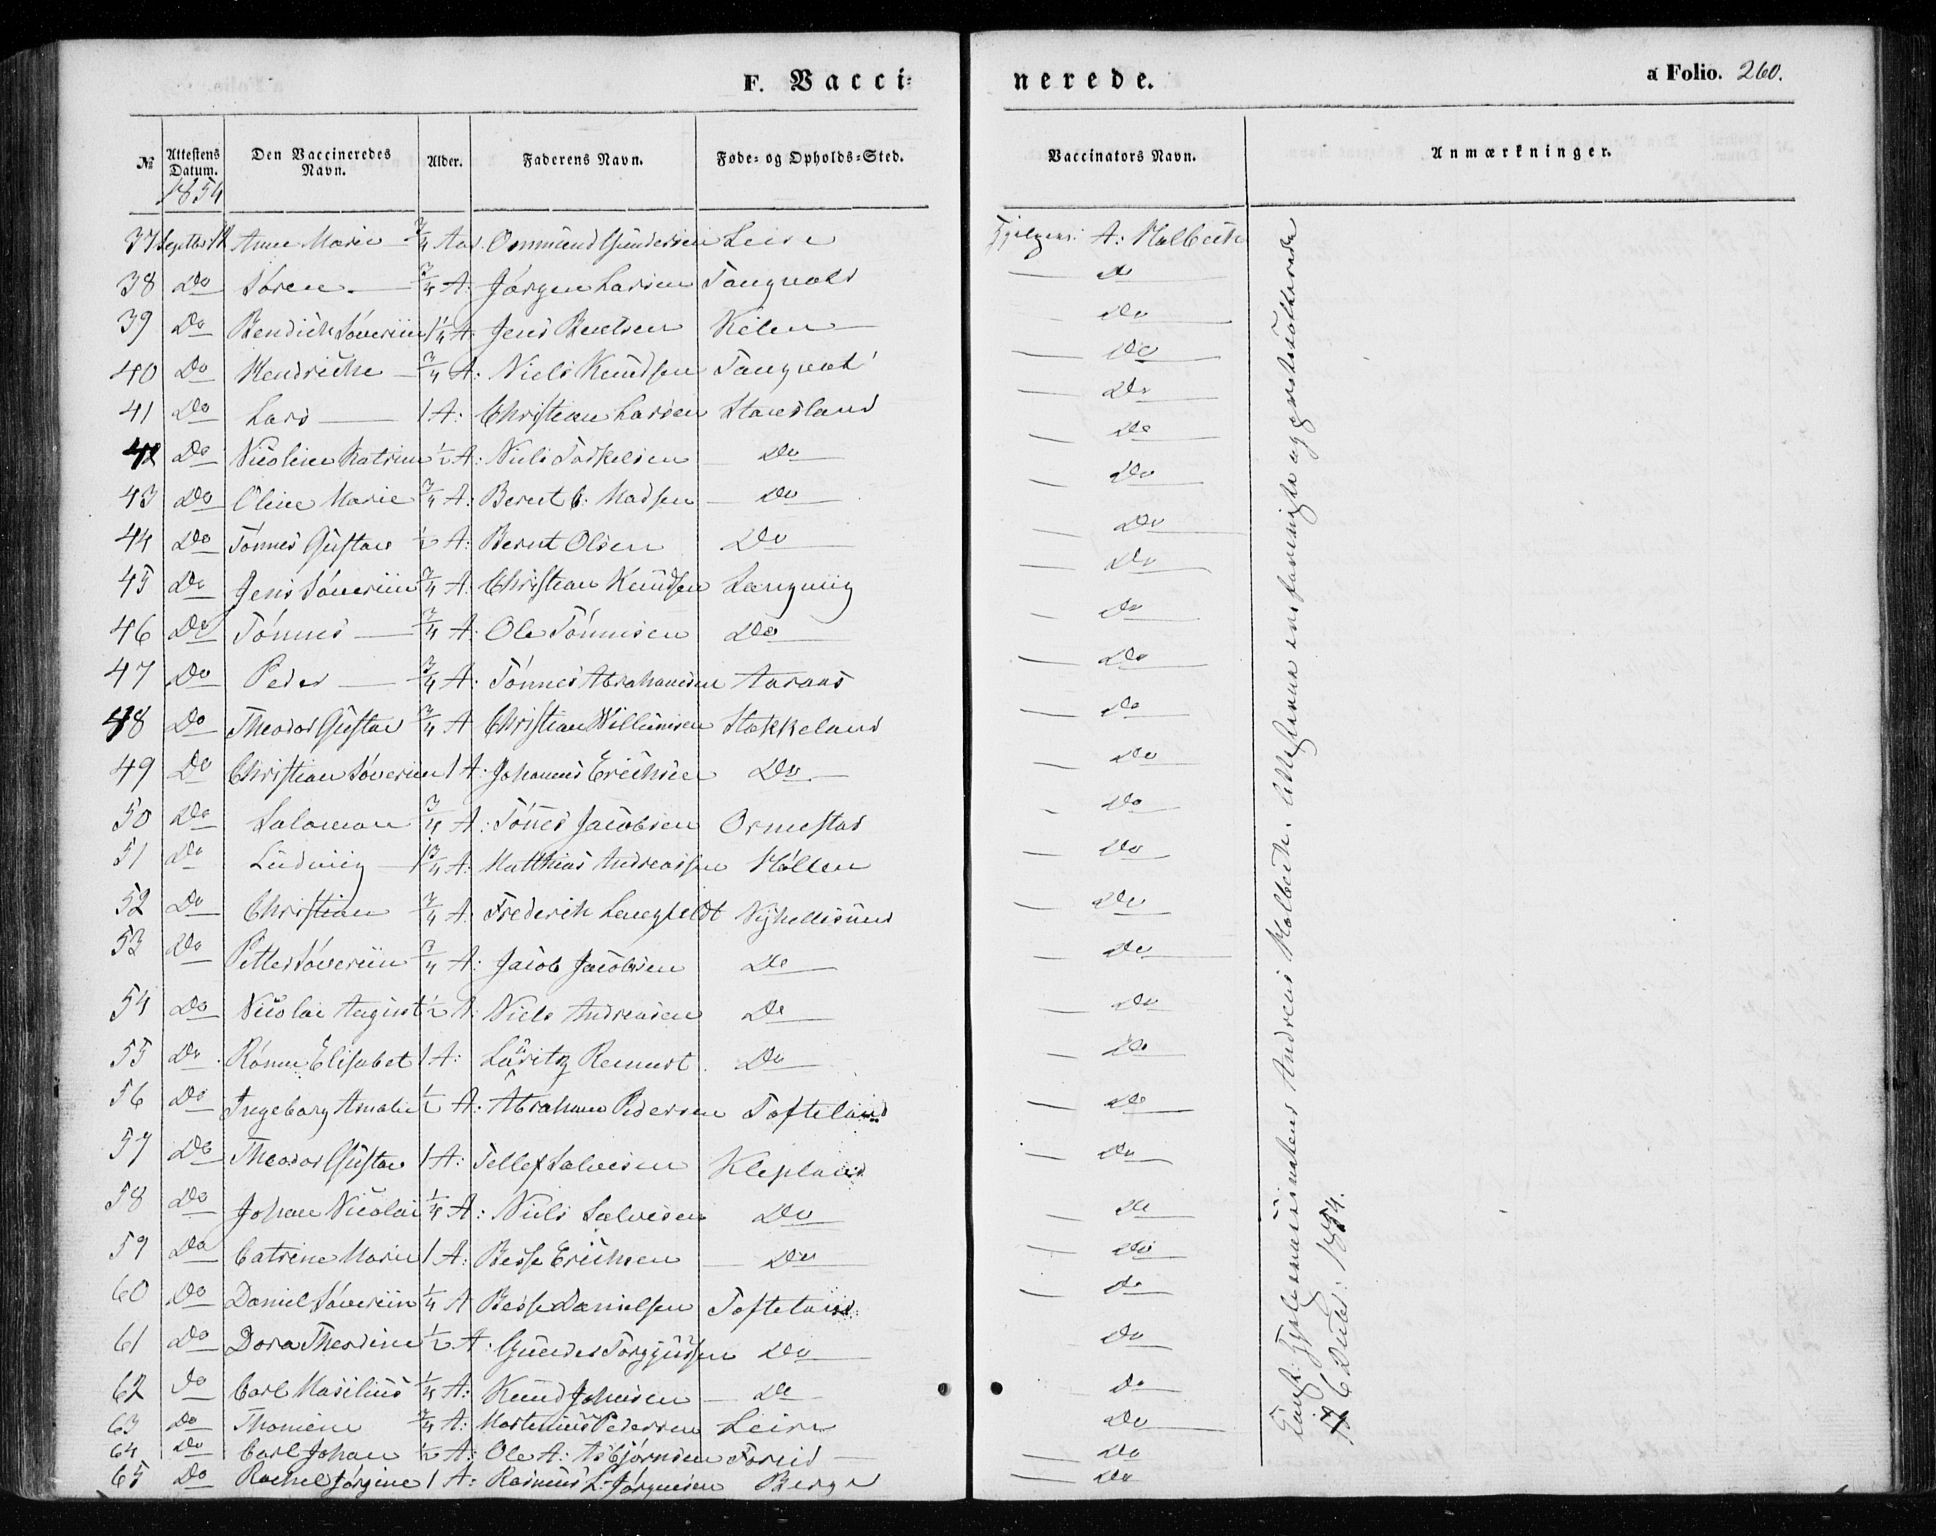 F. Vacci=
nerede.
a Folio. 260.
№ Attestens Datum. Den Vaccineredes Navn. Alder. Faderens Navn. Føde- og Opholds-Sted. Vaccinators Navn. Anmærkninger.
1854
37 Septbr Anne Marie 3/4 Aar Ommund Gundersen Leire A: Holbech
38 Do Sören 3/4 A: Jørgen Larsen Tangvald Do
39 Do Bendich Søveriin 1 1/4 A: Jens Bentsen Kilen Do
40 Do Hendriche 3/4 A: Niels Knudsen Tangvald Do
41 Do Lars 1 A: Christian Larsen Stausland Do
42 Do Nicoline Katrine 1/2 A: Niels Torkelsen Do Do
43 Do Oline Marie 3/4 A: Berent C. Madsen Do Do
44 Do Tönnes Gustav 1/2 A: Berent Olsen Do Do
45 Do Jens Söveriin 3/4 A: Christian Knudsen Langvig Do
46 Do Tönnes 3/4 A: Ole Tönnesen Do Do
47 Do Peder 3/4 A: Tönnes Abrahamsen Aaraas Do
48 Do Theodor Gustav 3/4 A Christian Willumsen Stokkeland Do
49 Do Christian Söveriin 1 A: Johannes Erichsen Do Do
50 Do Salomon 3/4 A: Tönnes Jacobsen Ormestad Do
51 Do Ludvig 1 3/4 A: Matthias Andreassen Møllen Do
52 Do Christian 3/4 A: Frederich Langfeldt Nyhellesund Do
53 Do Petter Söveriin 3/4 A: Jacob Jacobsen Do Do
54 Do Nicolai August 1/2 A: Niels Andreasen Do Do
55 Do Elisabet 1 A: Lauritz Do Do
56 Do Ingeborg Amalie 1/2 A: Abraham Pedersen Tofteland Do
57 Do Theodor Gustav 1 A: Tellef Salvesen Klepland Do
58 Do Johan Nicolai 1/4 A: Niels Salvesen Do Do
59 Do Catrine Marie 1 A: Besse Erichsen Do Do
60 Do Daniel Söveriin 1/4 A Besse Danielsen Tofteland Do
61 Do Dora Theodine 1/2 A: Gunder Torgjusen Do Do
62 Do Carl Masilius 1/4 A: Knud Johnsen Do Do
63 Do Thomine 3/4 A: Martinius Pedersen Leire Do
64 Do Carl Johan 1/2 A: Ole A: Asbjörnsen Do
65 Do Rachel Jørgine 1 A: Rasmus L. Jørgensen Berge Do
Andreas Holbech. Attesterne ere
1854.